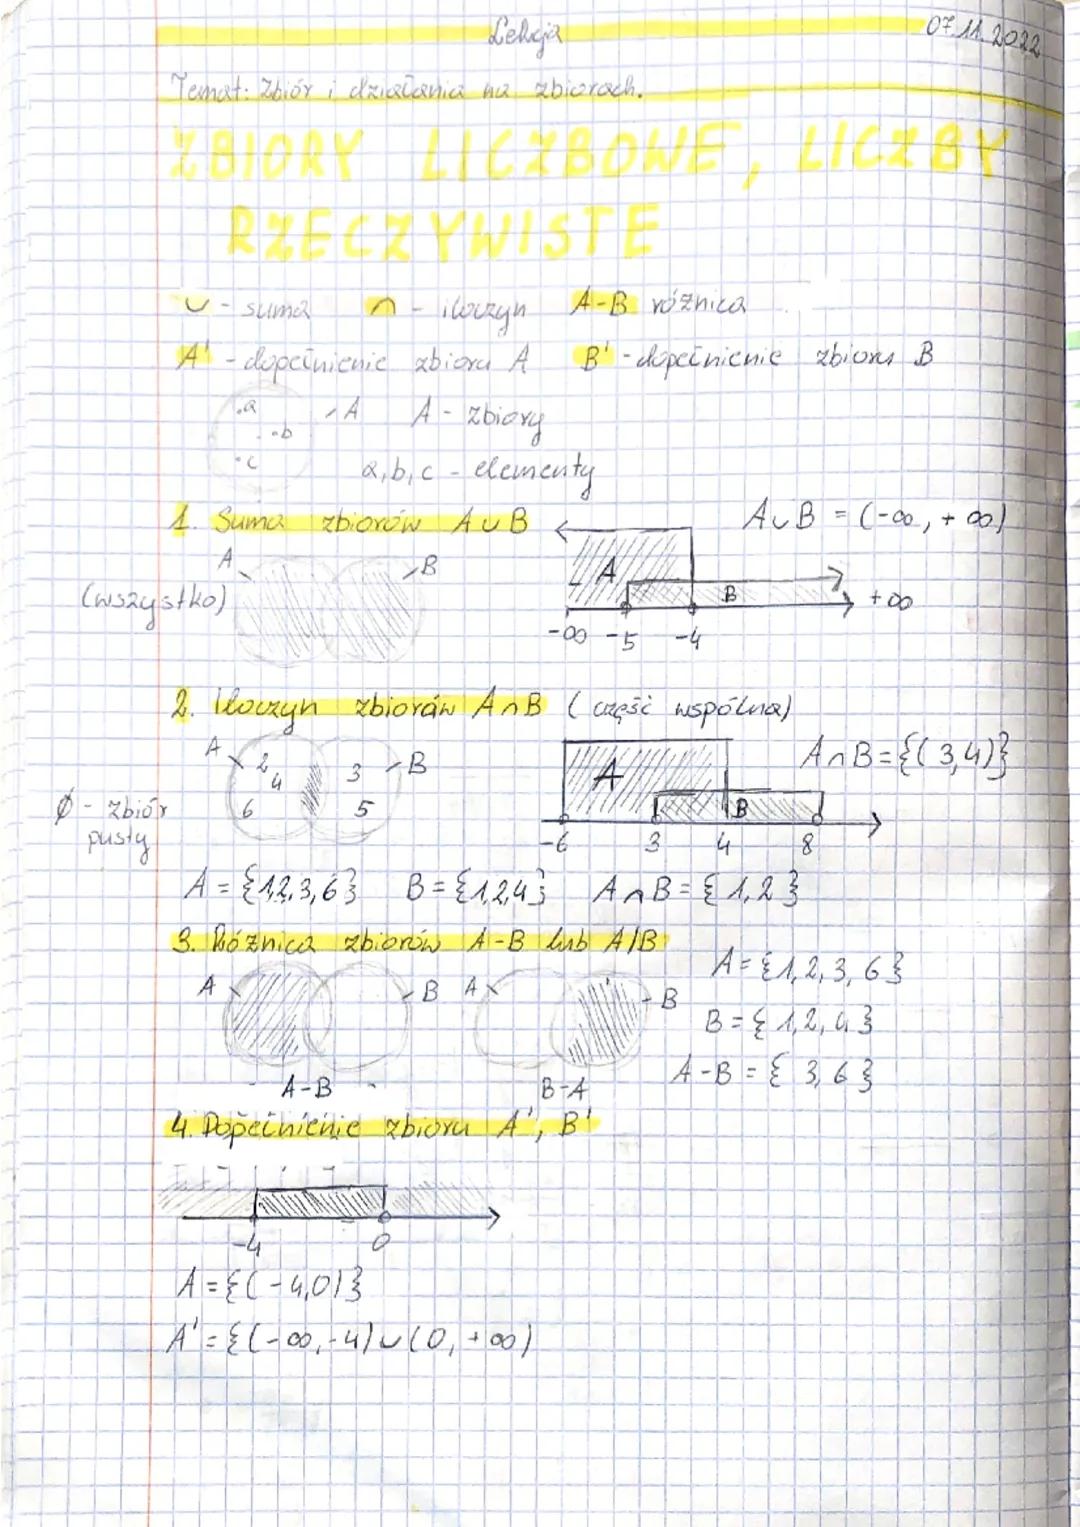 Lekcja 07.11.2022
Temat: Zbiór i działania na zbiorach.
ZBIORY LICZBOWE, LICZBY
RZECZYWISTE
∪ - suma ∩ - iloczyn A-B różnica
A' - dopełnienie zbioru A B' - dopełnienie zbioru B
.a .b .c A A - zbiory
a, b, c - elementy
1. Suma zbiorów A∪B A∪B = (-∞, +∞)
A B A B
(wszystko) +∞
-∞ -5 -4
2. Iloczyn zbiorów A∩B (część wspólna)
A 2 4 6 3 5 B A B A∩B={(3,4)}
∅ - zbiór
pusty
-6 3 4 8
A = {1,2,3,6} B = {1,2,4} A∩B = {1,2}
3. Różnica zbiorów A-B lub A/B
A B A B A={1,2,3,6}
B={1,2,4}
A-B B-A A-B = {3,6}
4. Dopełnienie zbioru A', B'
-4 0
A={(-4,0)}
A'={(-∞,-4)∪(0,+∞)